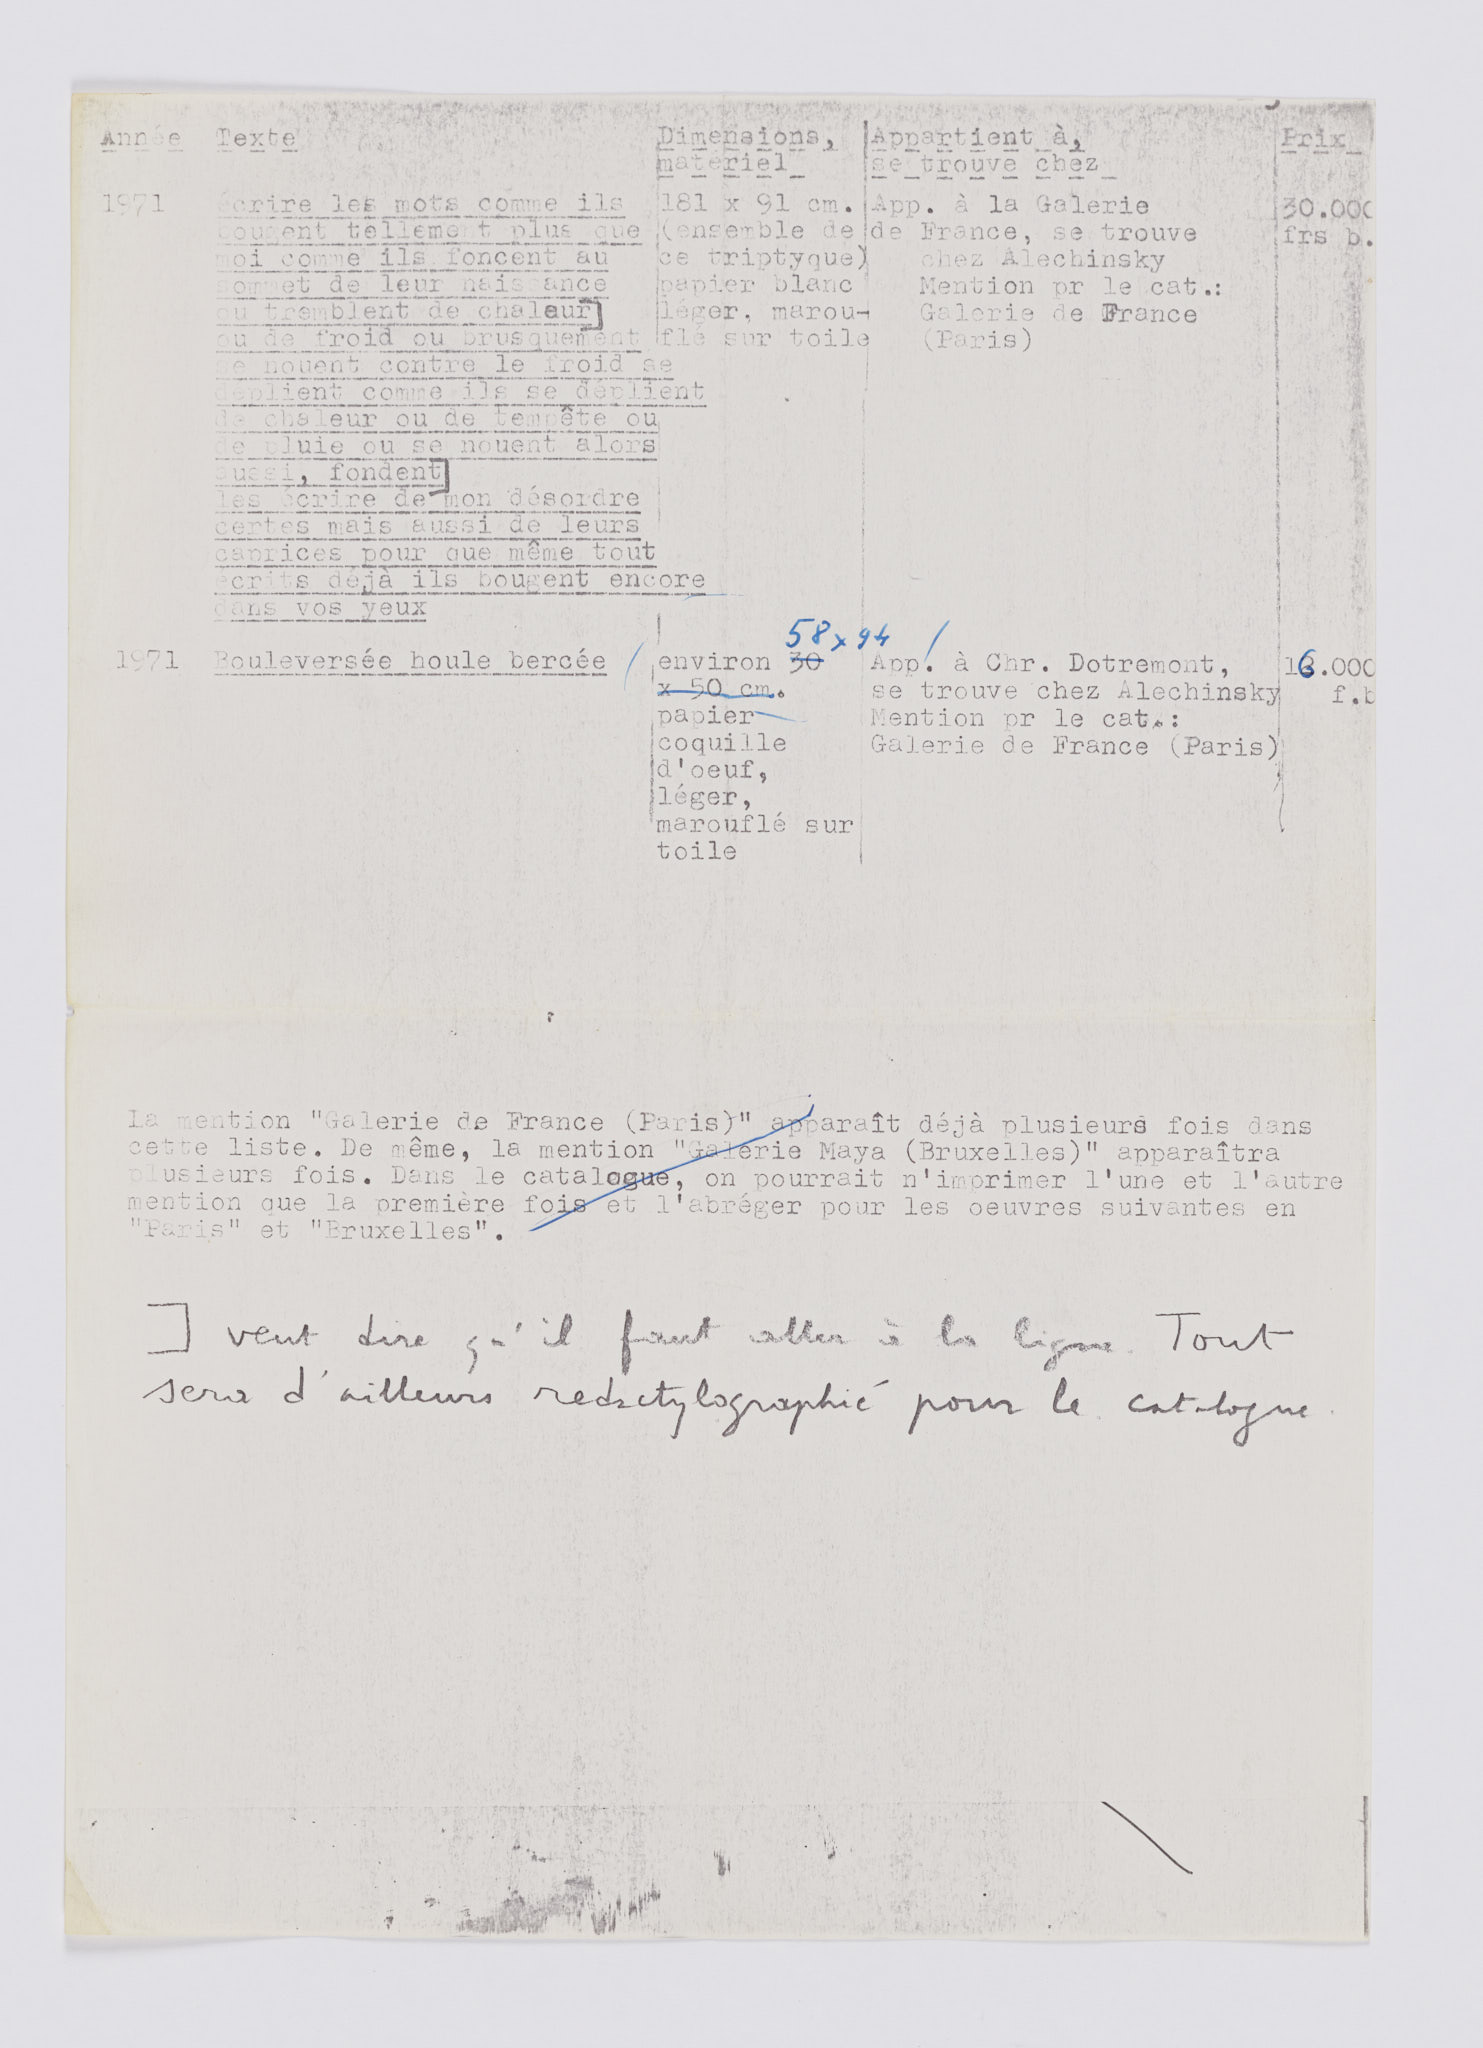 Année Texte Dimensions, Appartient à, Prix
matériel se trouve chez
1971 écrire les mots comme ils 181 x 91 cm. App. à la Galerie 30.000
bougent tellement plus que (ensemble de de France, se trouve frs b.
moi comme ils foncent au ce triptyque) chez Alechinsky
sommet de leur naissance papier blanc Mention pr le cat.:
ou tremblent de chaleur] léger, marou- Galerie de France
ou de froid ou brusquement flé sur toile (Paris)
se nouent contre le froid se
déplient comme ils se déplient
de chaleur ou de tempête ou
de pluie ou se nouent alors
aussi, fondent]
les écrire de mon désordre
certes mais aussi de leurs
caprices pour que même tout
écrits déjà ils bougent encore
dans vos yeux
58 x 94
1971 Bouleversée houle bercée environ 30 App. à Chr. Dotremont, 16.000
x 50 cm. se trouve chez Alechinsky f.b
papier Mention pr le cat.:
coquille Galerie de France (Paris)
d'oeuf,
léger,
marouflé sur
toile
La mention "Galerie de France (Paris)" apparaît déjà plusieurs fois dans
cette liste. De même, la mention "Galerie Maya (Bruxelles)" apparaîtra
plusieurs fois. Dans le catalogue, on pourrait n'imprimer l'une et l'autre
mention que la première fois et l'abréger pour les oeuvres suivantes en
"Paris" et "Bruxelles".
] veut dire qu'il faut aller à la ligne. Tout
sera d'ailleurs redactylographié pour le catalogue.